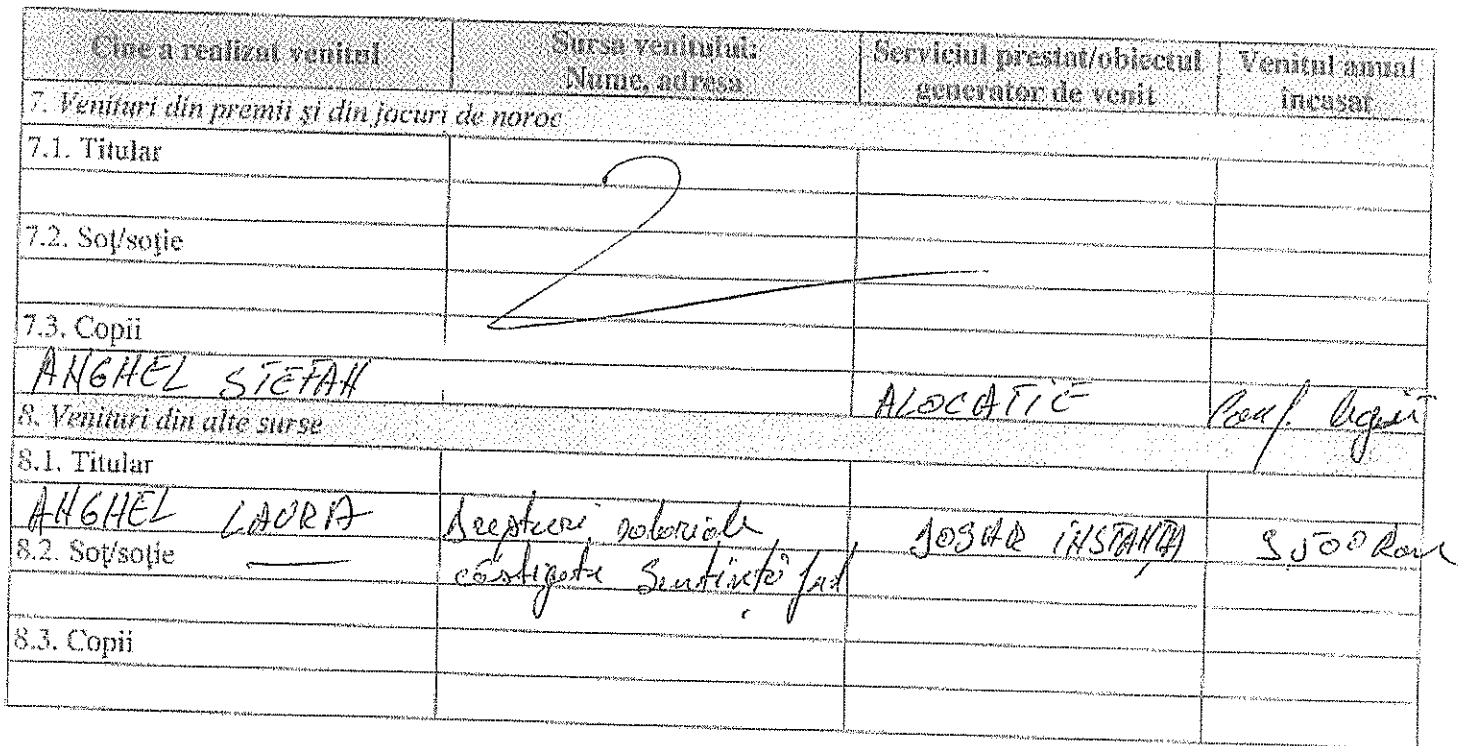 Cine a realizat venitul | Sursa venitului: Nume, adresa | Serviciul prestat/obiectul generator de venit | Venitul anual incasat
7. Venituri din premii și din jocuri de noroc
7.1. Titular
7.2. Soț/soție
7.3. Copii
ANGHEL STEFAN | ALOCATIE | Conf. legii
8. Venituri din alte surse
8.1. Titular
ANGHEL LAURA | Drepturi salariale | DOSAR INSTANȚĂ
8.2. Soț/soție — | câștigate Sentință jud
8.3. Copii